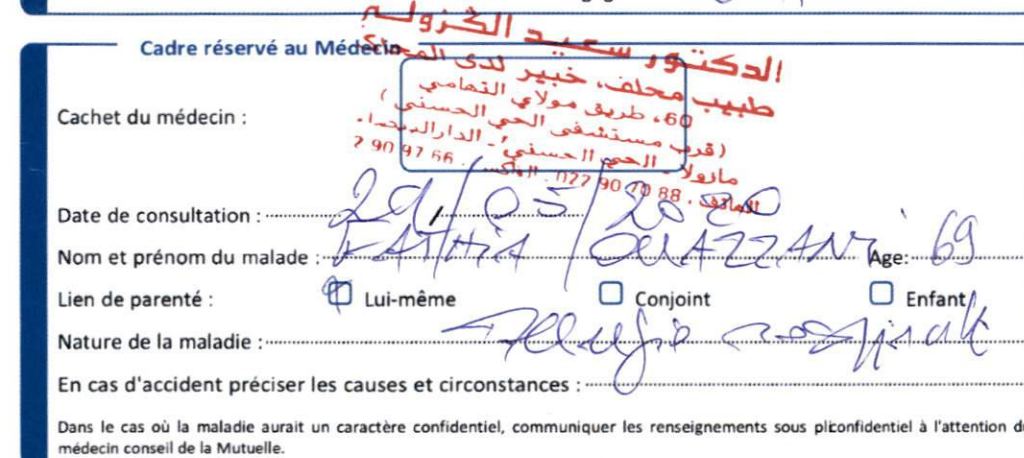 الدكتور سعيد الكزولي
Cadre réservé au Médecin
طبيب محلف، خبير لدى المحاكم
60، طريق مولاي التهامي
Cachet du médecin :
(قرب مستشفى الحي الحسني)
الحي الحسني - الدار البيضاء.
الهاتف . 022 90 70 88
Date de consultation : 29/05/2020
Nom et prénom du malade : FATHIA OUAZZANI Age: 69
Lien de parenté : Lui-même Conjoint Enfant
Nature de la maladie :
En cas d'accident préciser les causes et circonstances :
Dans le cas où la maladie aurait un caractère confidentiel, communiquer les renseignements sous pliconfidentiel à l'attention du
médecin conseil de la Mutuelle.